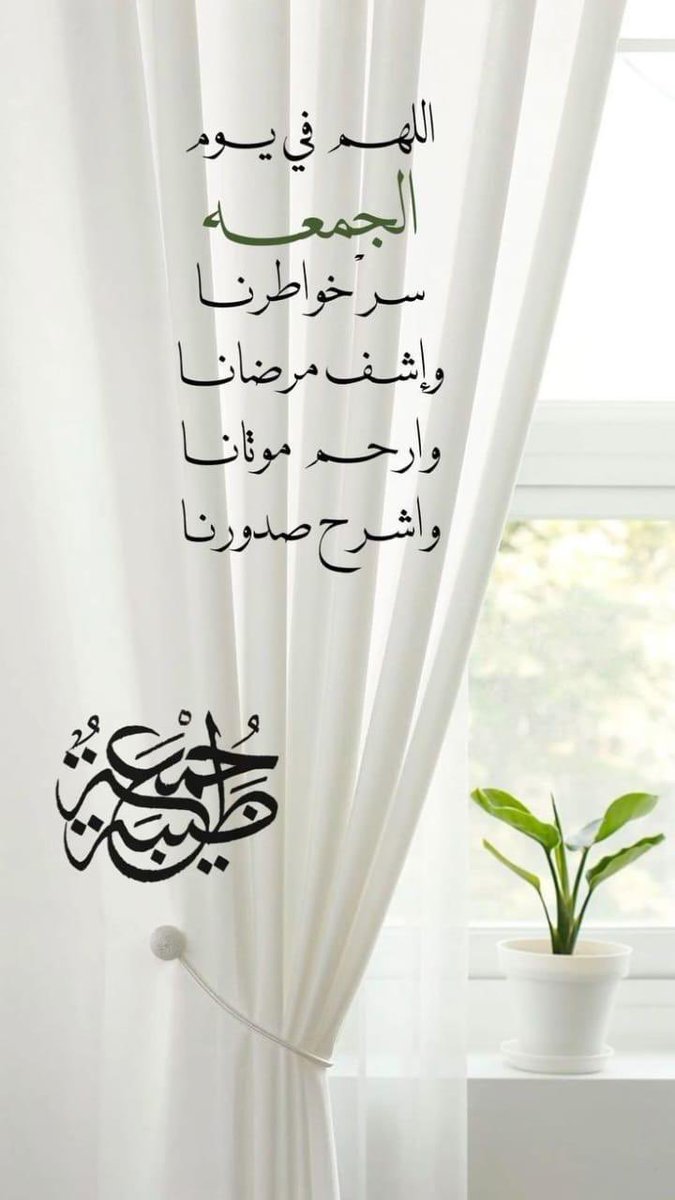 اللهم في يوم
الجمعه
سرْ خواطرنا
وإشف مرضانا
وارحم موتانا
واشرح صدورنا
جُمْعَةٌ
طَيِّبَة